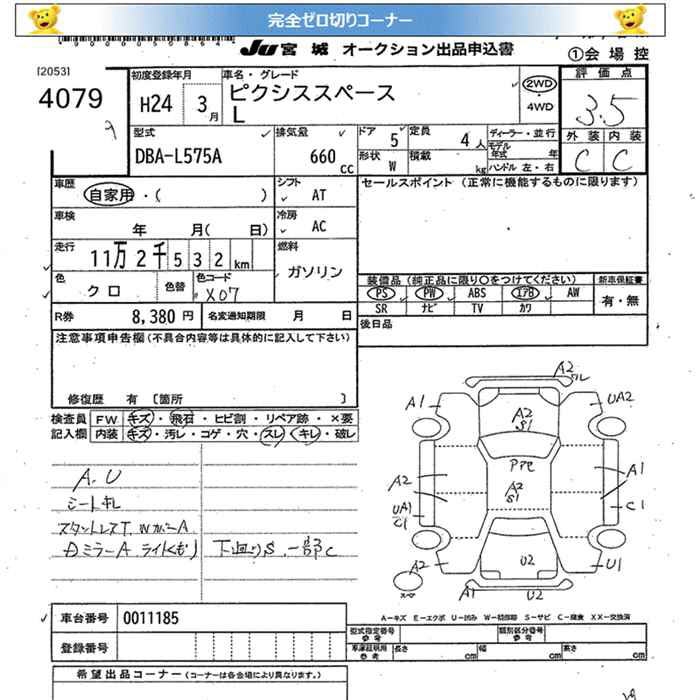 完全ゼロ切りコーナー
JU 宮城 オークション出品申込書
①会場控
[2053]
4079
初度登録年月 H24 3月
車名・グレード ピクシススペース L
2WD・4WD
評価点 3.5
外装 内装
C C
型式 DBA-L575A
排気量 660 cc
ドア 5
定員 4人
形状 W
積載 kg
ディーラー・並行
モデル年式 年
ハンドル 左・右
車歴 自家用・( )
シフト AT
セールスポイント (正常に機能するものに限ります)
車検 年 月( 日)
冷房 AC
走行 11万2千532km
燃料 ガソリン
色 クロ 色替 色コード X07
装備品 (純正品に限り○をつけてください) 新車保証書
PS PW ABS エアB AW 有・無
SR ナビ TV カワ
R券 8,380円 名変通知期限 月 日
後日品
注意事項申告欄 (不具合内容等は具体的に記入して下さい)
修復歴 有 [箇所 ]
検査員 FW キズ・飛石・ヒビ割・リペア跡・×要
記入欄 内装 キズ・汚レ・コゲ・穴・スレ・キレ・破レ
A.U
シート札
スタットレスT. WカバーA
DミラーA ライトくもり 下廻りS.一部C
A2
ワレ
A1
UA2
A2
S1
A2
A2
S1
A1
UA1
C1
C1
A2
U2
U2
U1
A1
A-キズ E-エクボ U-凹み W-補修跡 S-サビ C-腐食 XX-交換済
車台番号 0011185
型式指定番号 参考 類別区分番号 参考
登録番号
車庫証明用 参考 長さ cm 幅 cm 高さ cm
希望出品コーナー (コーナーは各会場により異なります。)